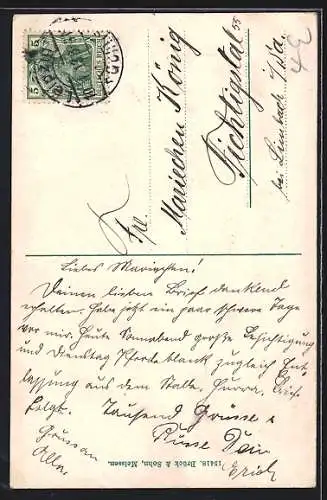 5 5
Leipzig
Frl.
Mariechen König
Fichtigstal
bei Limbach i/Sa.
Liebes Mariechen!
Deinen lieben Brief dankend
erhalten. Habe jetzt ein paar schwere Tage
vor mir. Heute Sonnabend große Besichtigung
und Dienstag Pferde blank zugleich Ent
lassung aus dem Stalle. Hurra.
folgt. Tausend Grüsse u
Küsse Dein
Erich
Gruss an
Alle.
15418. Brück & Sohn, Meissen.